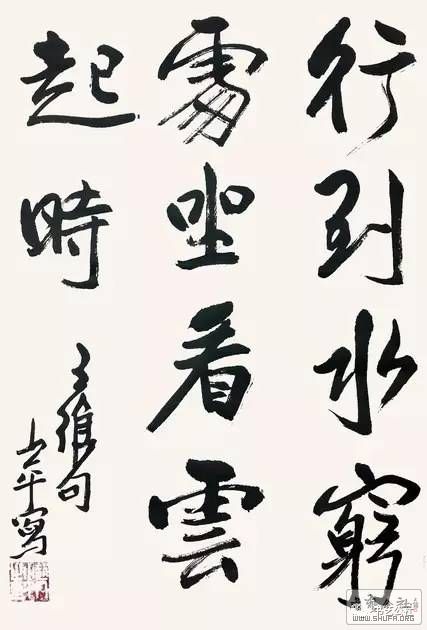 行到水窮
處坐看雲
起時
王維句
士平寫
WWW.SHUFA.ORG